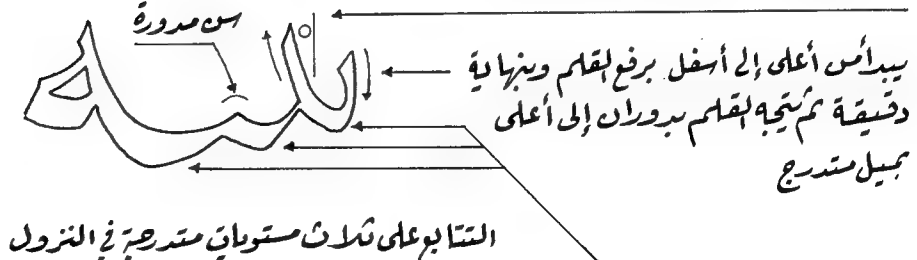 سن مدورة
يبدأ من أعلى إلى أسفل برفع القلم وبنهاية
دقيقة ثم يتجه القلم بدوران إلى أعلى
بميل متدرج
التتابع على ثلاث مستويات متدرجة في النزول